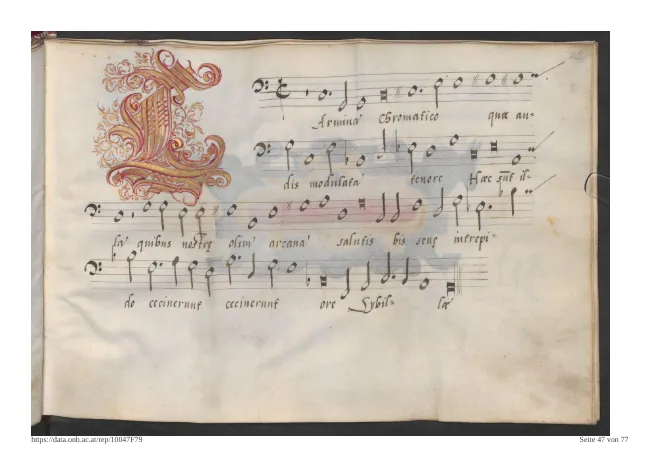 Armina Chromatico quæ au-
dis modulata tenore Hæc sūt il-
la quibus nostrę olim arcana salutis bis senę intrepi-
do cecinerunt cecinerunt ore Sybil- læ
https://data.onb.ac.at/rep/10047F79 Seite 47 von 77